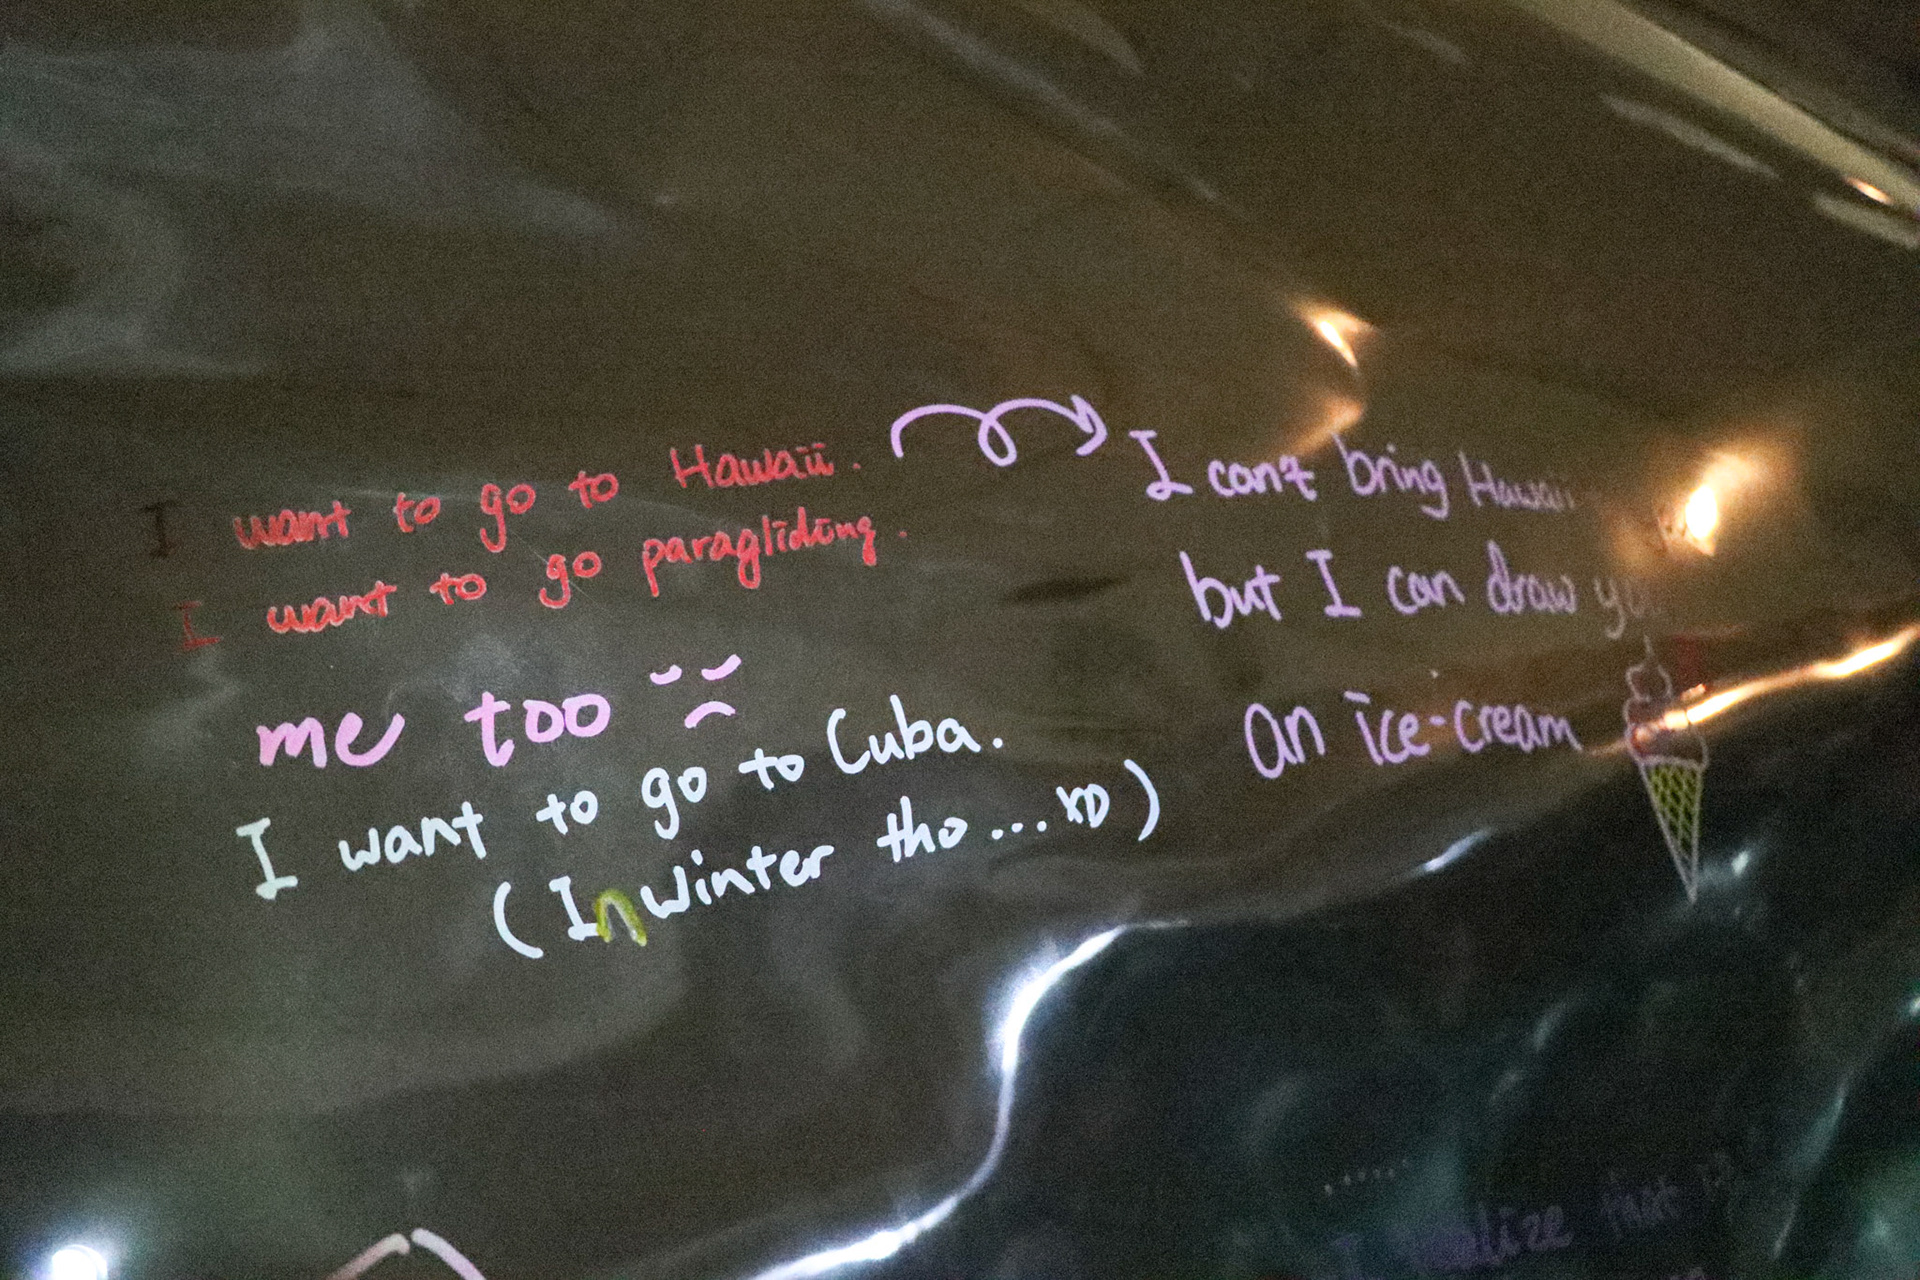 I want to go to Hawaii.
I want to go paragliding.
me too
I want to go to Cuba.
(In winter tho... XD)
I can't bring Hawaii
but I can draw you
an ice-cream
I realize that